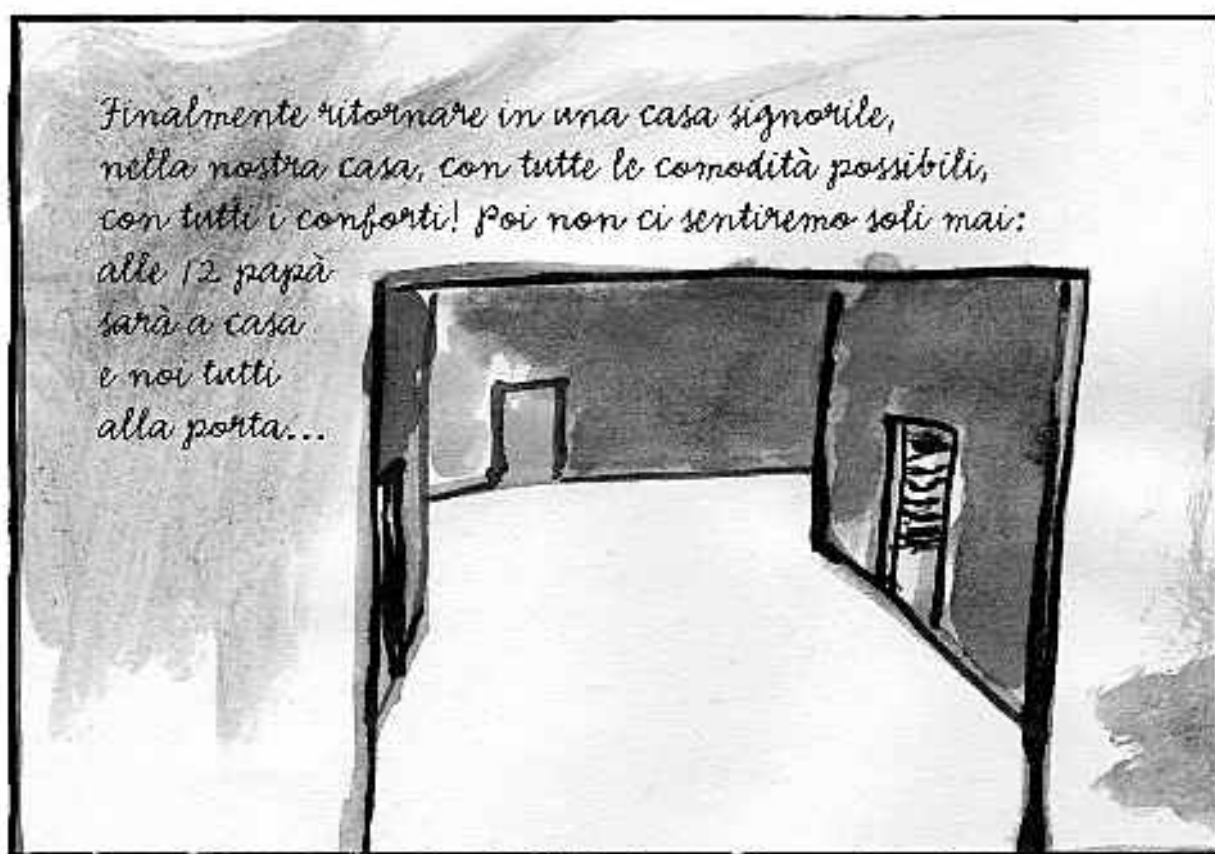 Finalmente ritornare in una casa signorile,
nella nostra casa, con tutte le comodità possibili,
con tutti i conforti! Poi non ci sentiremo soli mai:
alle 12 papà
sarà a casa
e noi tutti
alla porta...